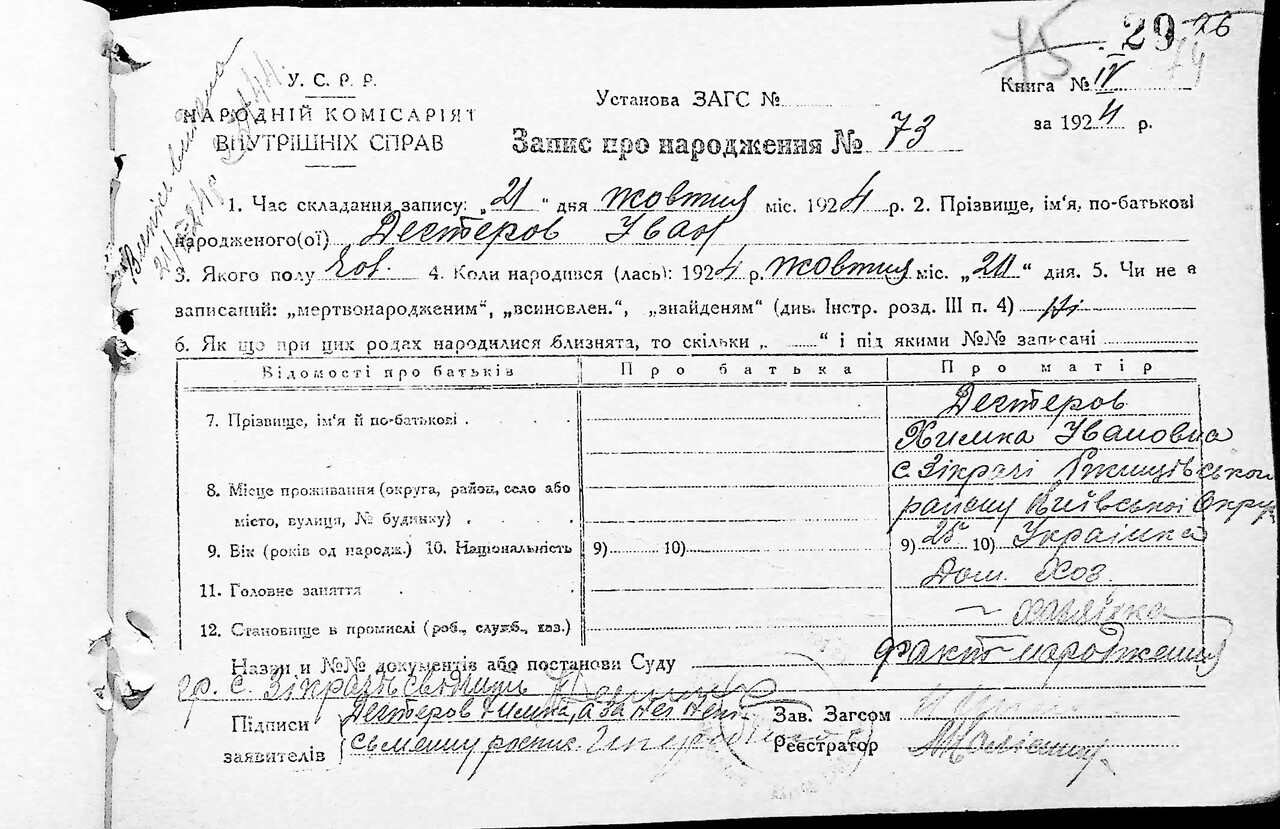 75 29 76
74
У. С. Р. Р.
НАРОДНІЙ КОМІСАРІЯТ
ВНУТРІШНІХ СПРАВ
Установа ЗАГС №
Книга № IV
за 1924 р.
Запис про народження № 73
1. Час складання запису: „21“ дня жовтня міс. 1924 р. 2. Прізвище, ім'я, по-батькові
народженого(ої) Дегтеров Іван
3. Якого полу чол. 4. Коли народився (лась): 1924 р. жовтня міс. „20“ дня. 5. Чи не є
записаний: „мертвонародженим“, „всиновлен.“, „знайденям“ (див. Інстр. розд. III п. 4) ні
6. Як що при цих родах народилися близнята, то скільки „ “ і під якими №№ записані
Відомості про батьків Про батька Про матір
7. Прізвище, ім'я й по-батькові Дегтеров
Химка Івановна
8. Місце проживання (округа, район, село або с Зікрачі Ржищівського
місто, вулиця, № будинку) району Київської Округ
9. Вік (років од народж.) 10. Національність 9) 10) 9) 25 10) Українка
11. Головне заняття Дом. Хоз.
12. Становище в промислі (роб., служб., хаз.) хазяйка
Назви и №№ документів або постанови Суду факт народження
гр. с. Зікрачі свідчить
Підписи
заявителів
Дегтеров Химка, а за неї
росп.
Зав. Загсом
Реєстратор